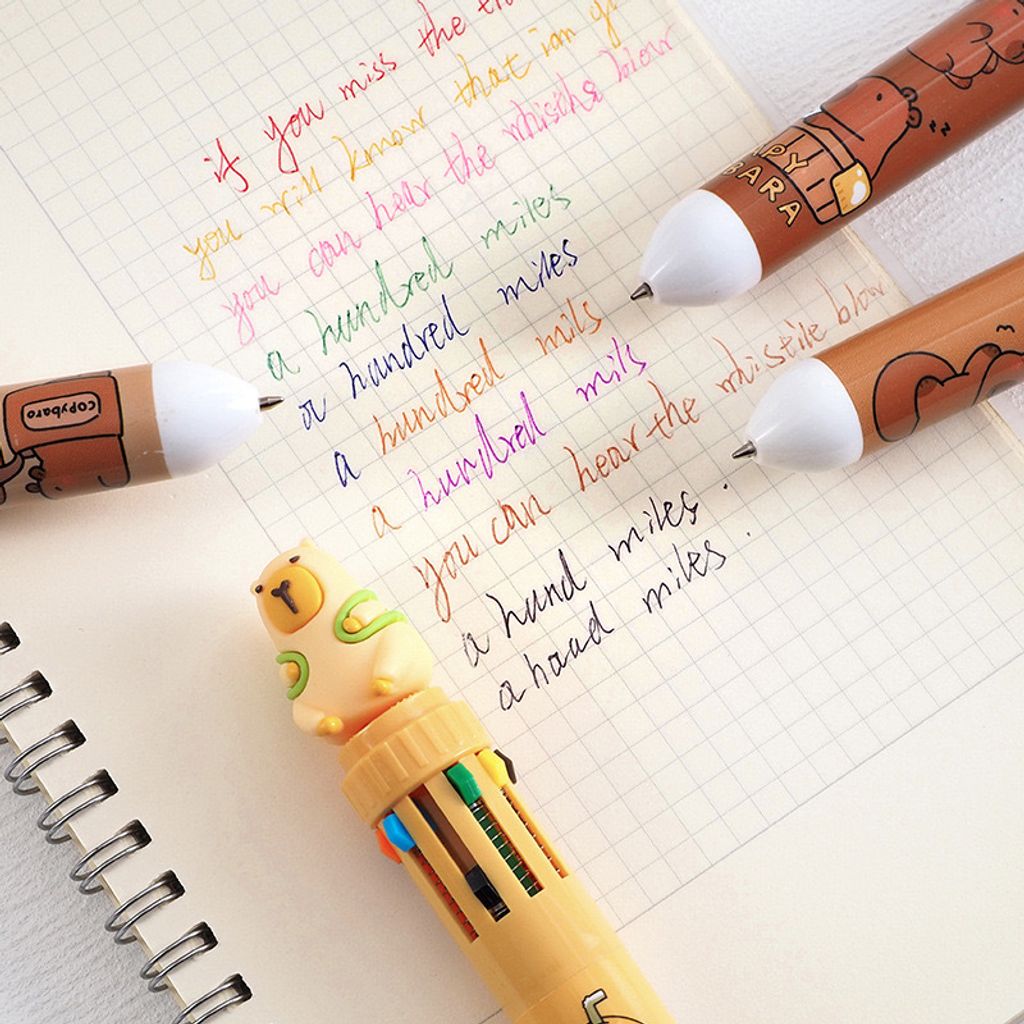 if you miss the
you will know that iam
you can hear the whistle blow
a hundred miles
a hundred miles
a hundred mils
a hundred mils
you can hear the whistile blow
a hund miles.
a haad miles.
APY
BARA
copybaro